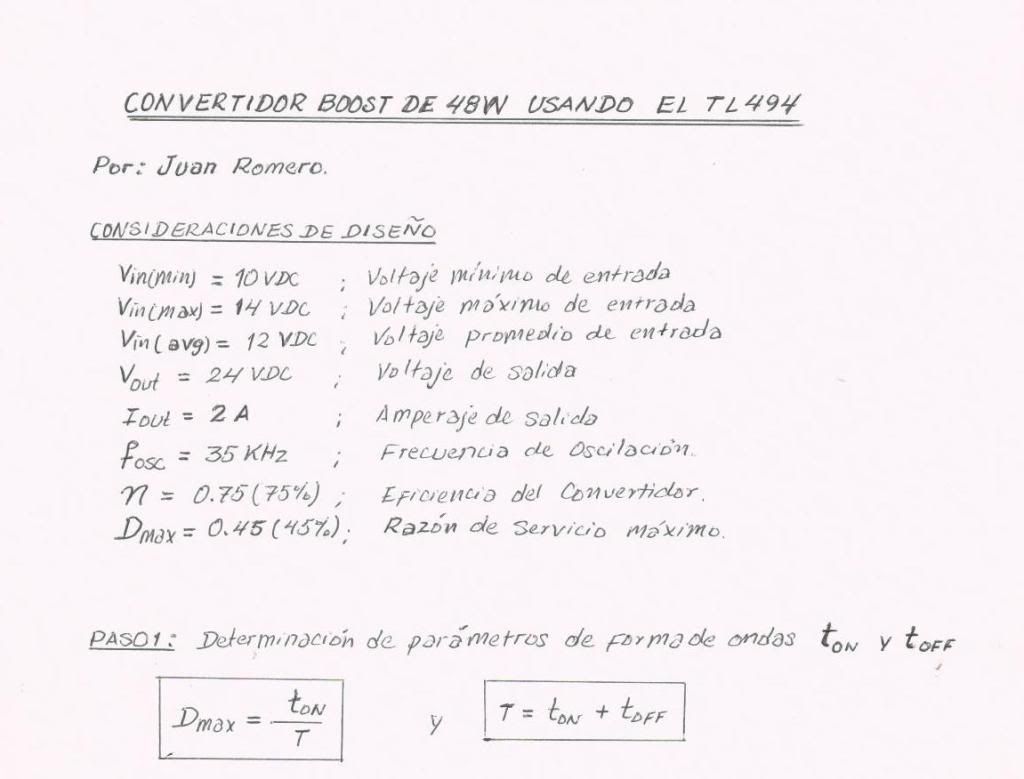 CONVERTIDOR BOOST DE 48W USANDO EL TL494
Por: Juan Romero.
CONSIDERACIONES DE DISEÑO
Vin(min) = 10 VDC ; Voltaje mínimo de entrada
Vin(max) = 14 VDC ; Voltaje máximo de entrada
Vin(avg) = 12 VDC ; Voltaje promedio de entrada
Vout = 24 VDC ; Voltaje de salida
Iout = 2 A ; Amperaje de salida
fosc = 35 KHz ; Frecuencia de Oscilación.
η = 0.75 (75%) ; Eficiencia del Convertidor.
Dmax = 0.45 (45%); Razón de Servicio máximo.
PASO1: Determinación de parámetros de forma de ondas tON y tOFF
Dmax = tON / T y T = tON + tOFF